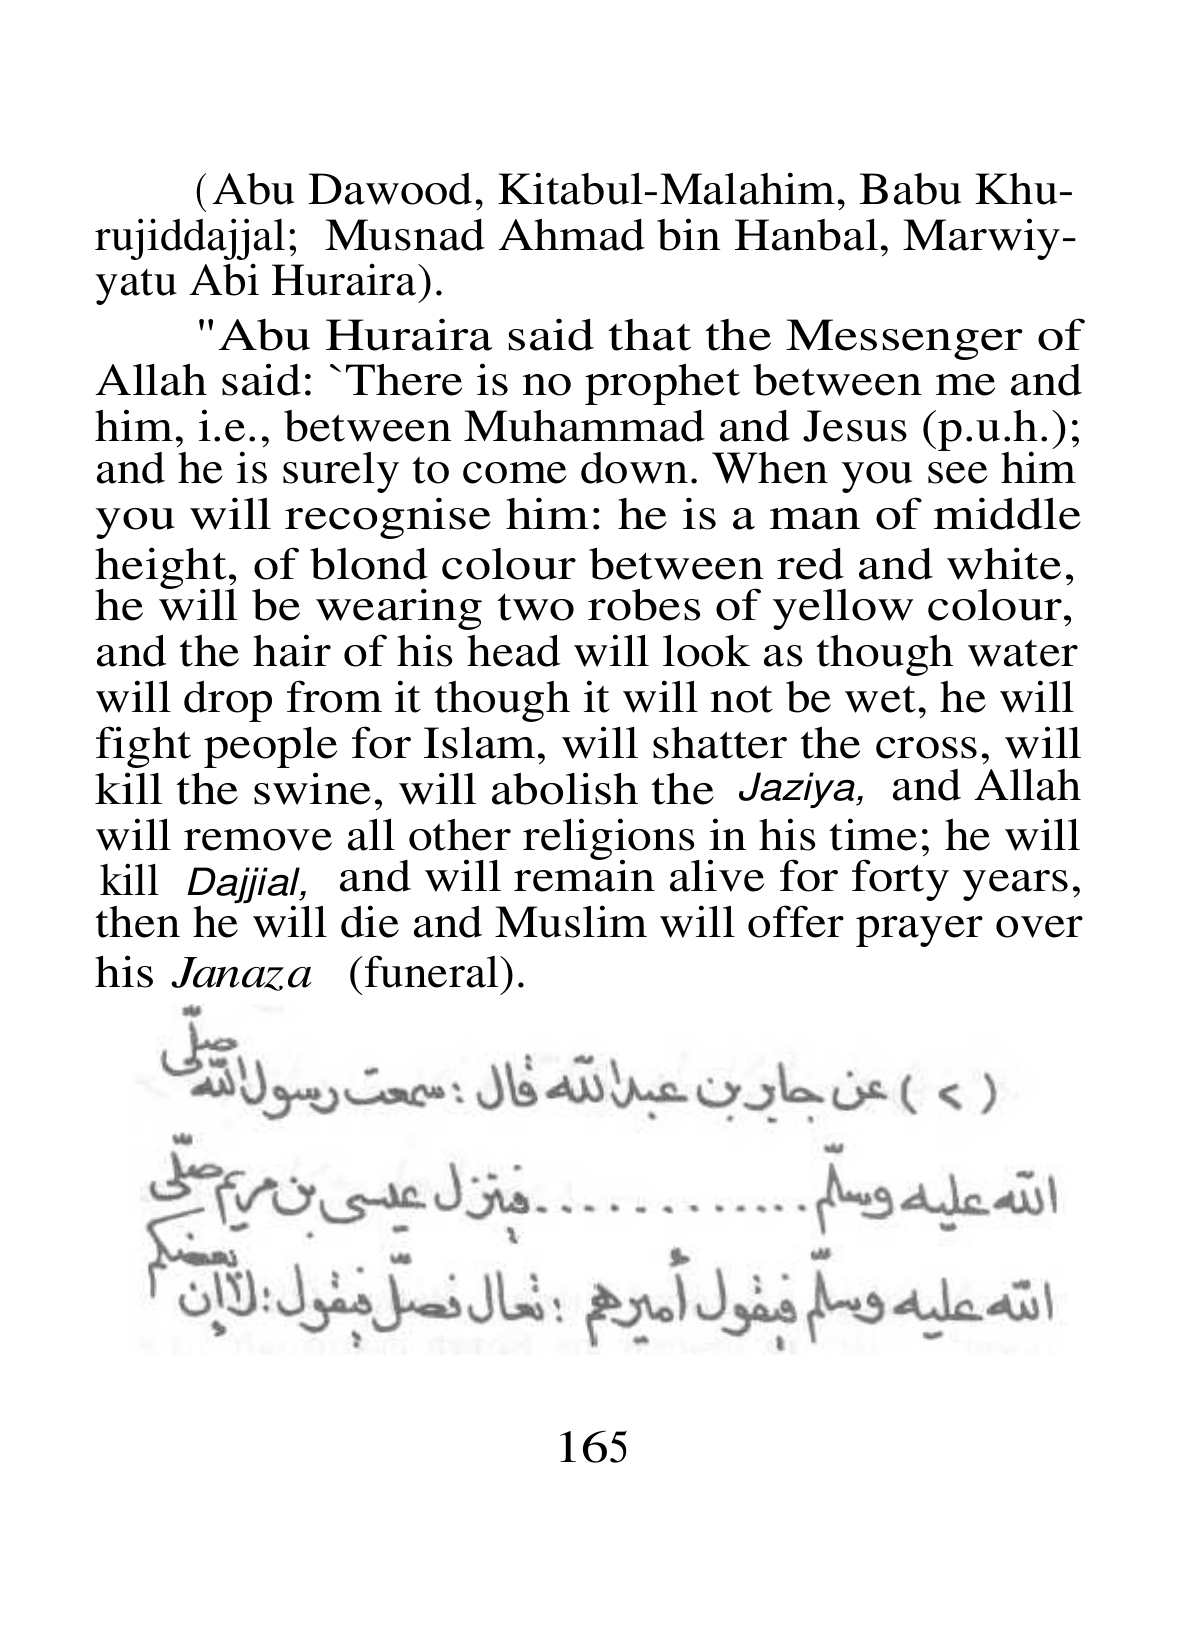 (Abu Dawood, Kitabul-Malahim, Babu Khu-
rujiddajjal; Musnad Ahmad bin Hanbal, Marwiy-
yatu Abi Huraira).
"Abu Huraira said that the Messenger of
Allah said: `There is no prophet between me and
him, i.e., between Muhammad and Jesus (p.u.h.);
and he is surely to come down. When you see him
you will recognise him: he is a man of middle
height, of blond colour between red and white,
he will be wearing two robes of yellow colour,
and the hair of his head will look as though water
will drop from it though it will not be wet, he will
fight people for Islam, will shatter the cross, will
kill the swine, will abolish the Jaziya, and Allah
will remove all other religions in his time; he will
kill Dajjial, and will remain alive for forty years,
then he will die and Muslim will offer prayer over
his Janaza (funeral).
عن جابر بن عبد الله قال : سمعت رسول الله صلّى
الله عليه وسلّم .............فينزل عيسى بن مريم صلّى
الله عليه وسلّم فيقول أميرهم : تعال فصلّ فيقول : لا إن بعضكم
165